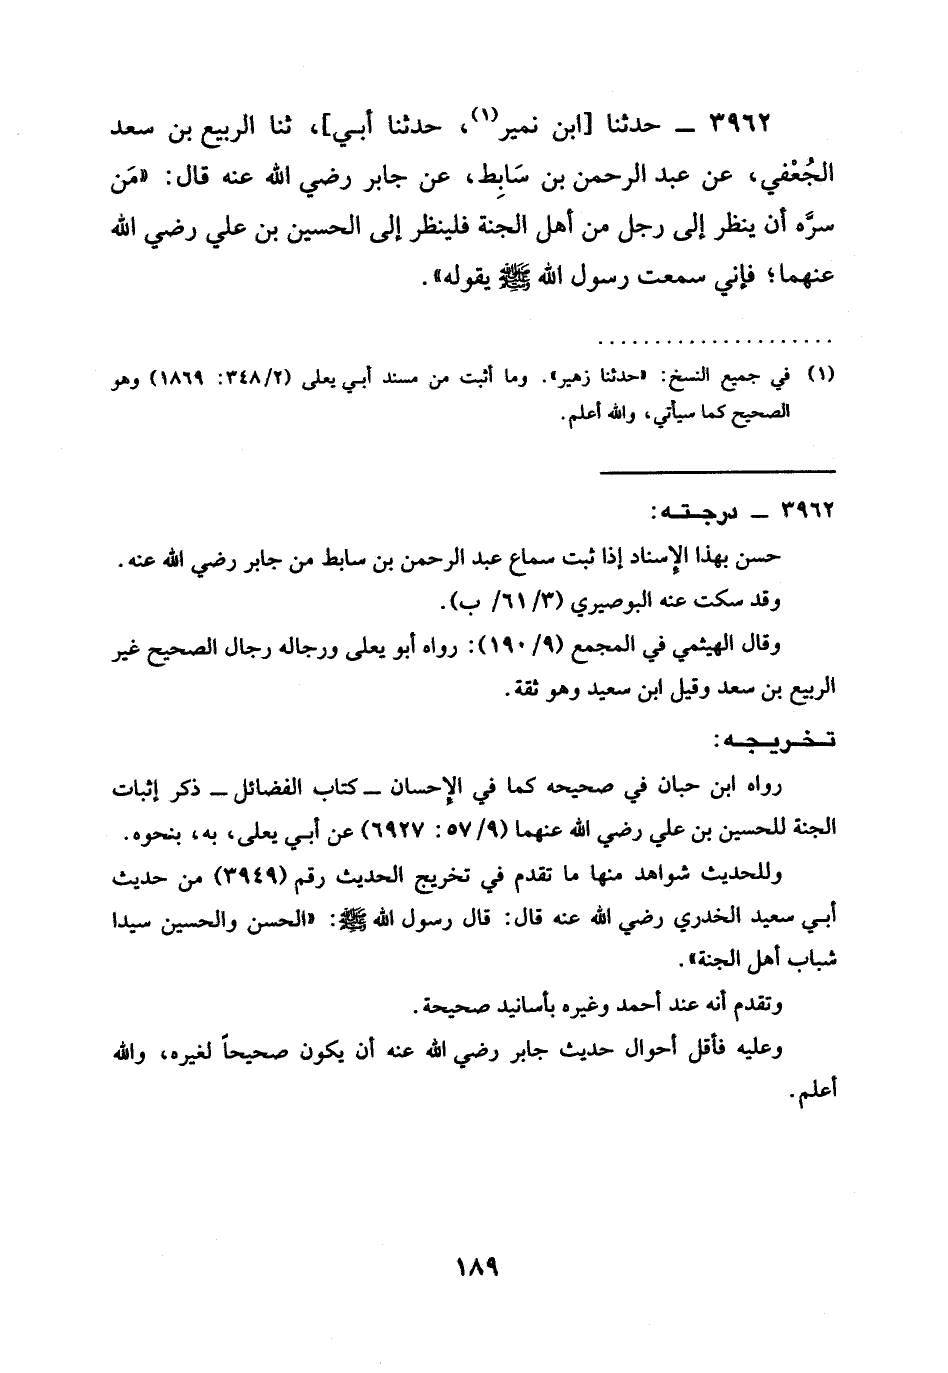 ٣٩٦٢ ــ حدثنا [ابن نمير(١)، حدثنا أبـي]، ثنا الربيع بن سعد
الجُعْفي، عن عبد الرحمن بن سَابِط، عن جابر رضي الله عنه قال: «مَن
سرَّه أن ينظر إلى رجل من أهل الجنة فلينظر إلى الحسين بن علي رضي الله
عنهما؛ فإني سمعت رسول الله ﷺ يقوله».
.....................
(١) في جميع النسخ: «حدثنا زهير». وما أثبت من مسند أبـي يعلى (٣٤٨/٢: ١٨٦٩) وهو
الصحيح كما سيأتي، والله أعلم.
٣٩٦٢ ــ درجـتـه:
حسن بهذا الإسناد إذا ثبت سماع عبد الرحمن بن سابط من جابر رضي الله عنه.
وقد سكت عنه البوصيري (٣/ ٦١/ ب).
وقال الهيثمي في المجمع (٩/ ١٩٠): رواه أبو يعلى ورجاله رجال الصحيح غير
الربيع بن سعد وقيل ابن سعيد وهو ثقة.
تـخـريـجـه:
رواه ابن حبان في صحيحه كما في الإحسان ــ كتاب الفضائل ــ ذكر إثبات
الجنة للحسين بن علي رضي الله عنهما (٩/ ٥٧: ٦٩٢٧) عن أبـي يعلى، به، بنحوه.
وللحديث شواهد منها ما تقدم في تخريج الحديث رقم (٣٩٤٩) من حديث
أبـي سعيد الخدري رضي الله عنه قال: قال رسول الله ﷺ: «الحسن والحسين سيدا
شباب أهل الجنة».
وتقدم أنه عند أحمد وغيره بأسانيد صحيحة.
وعليه فأقل أحوال حديث جابر رضي الله عنه أن يكون صحيحاً لغيره، والله
أعلم.
١٨٩